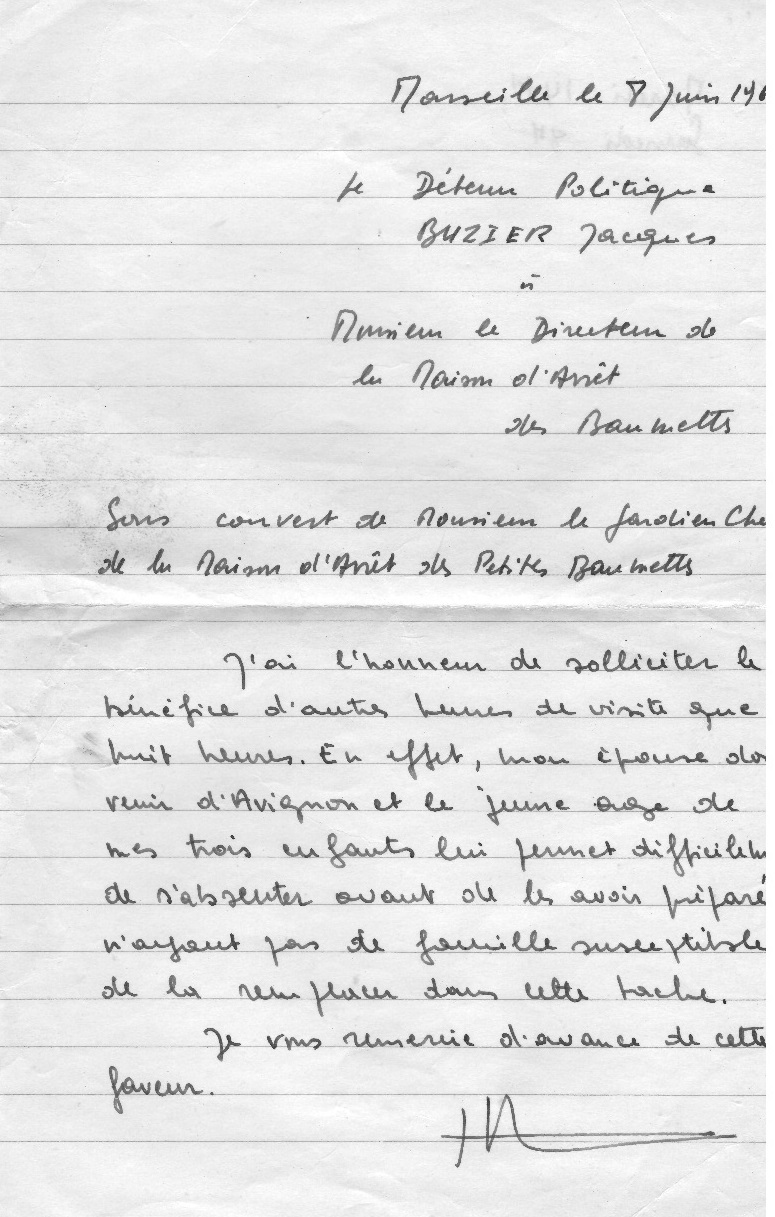 Marseille le 8 Juin 196
Le Détenu Politique
BUZIER Jacques
à
Monsieur le Directeur de
la Maison d'Arrêt
des Baumetts
Sous couvert de Monsieur le Gardien Che
de la Maison d'Arrêt des Petites Baumetts
J'ai l'honneur de solliciter le
bénéfice d'autres heures de visite que
huit heures. En effet, mon épouse do
venir d'Avignon et le jeune age de
mes trois enfants lui permet difficilem
de s'absenter avant de les avoir préparé
n'ayant pas de famille susceptible
de la remplacer dans cette tache.
Je vous remercie d'avance de cette
faveur.